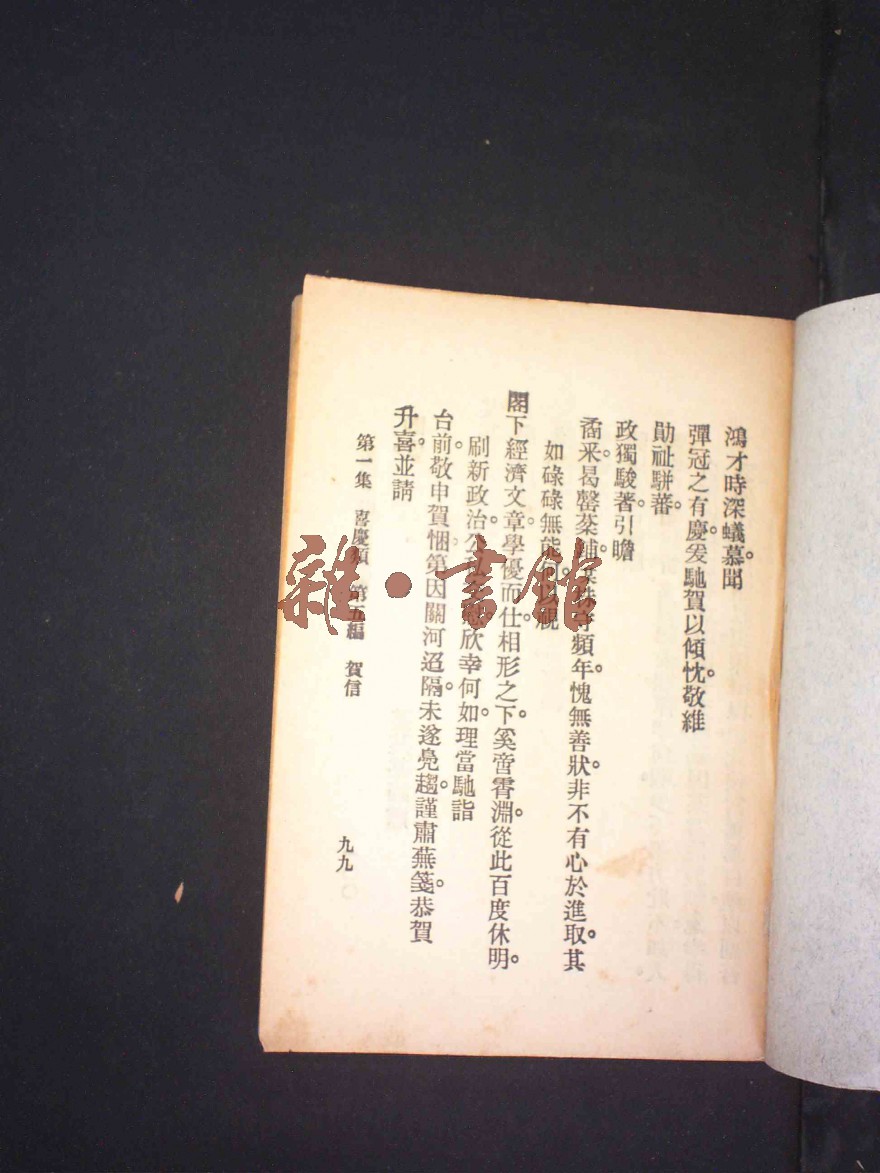 鴻才時深蟻慕。聞
彈冠之有慶。爰馳賀以傾忱。敬維
勛祉駢蕃。
政猷駿著。引瞻
喬釆。曷罄葵 頻年。愧無善狀。非不有心於進取。其
如碌碌無能
閣下經濟文章。學優而仕。相形之下。奚啻霄淵。從此百度休明。
刷新政治。公私 欣幸何如。理當馳詣
台前。敬申賀悃。第因關河迢隔。未遂鳧趨。謹肅蕪箋。恭賀
升喜。並請
第一集 喜慶類 第五編 賀信
九九
雜·書館